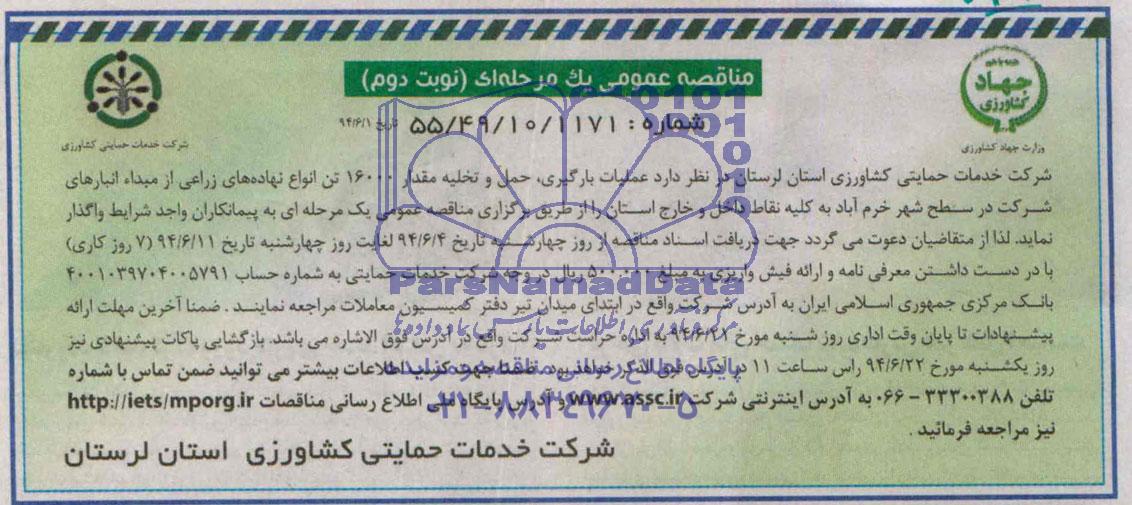 مناقصه عمومی یک مرحله‌ای (نوبت دوم)
جهاد کشاورزی
شماره : ۵۵/۴۹/۱۰/۱۱۷۱ تاریخ ۹۴/۶/۱
وزارت جهاد کشاورزی
شرکت خدمات حمایتی کشاورزی
شرکت خدمات حمایتی کشاورزی استان لرستان در نظر دارد عملیات بارگیری، حمل و تخلیه مقدار ۱۶۰۰۰ تن انواع نهاده‌های زراعی از مبداء انبارهای
شرکت در سطح شهر خرم آباد به کلیه نقاط داخل و خارج استان را از طریق برگزاری مناقصه عمومی یک مرحله ای به پیمانکاران واجد شرایط واگذار
نماید. لذا از متقاضیان دعوت می گردد جهت دریافت اسناد مناقصه از روز چهارشنبه تاریخ ۹۴/۶/۴ لغایت روز چهارشنبه تاریخ ۹۴/۶/۱۱ (۷ روز کاری)
با در دست داشتن معرفی نامه و ارائه فیش واریزی به مبلغ ۵۰۰,۰۰۰ ریال در وجه شرکت خدمات حمایتی به شماره حساب ۴۰۰۱۰۳۹۷۰۴۰۰۵۷۹۱
بانک مرکزی جمهوری اسلامی ایران به آدرس شرکت واقع در ابتدای میدان تیر دفتر کمیسیون معاملات مراجعه نمایند . ضمنا آخرین مهلت ارائه
پیشنهادات تا پایان وقت اداری روز شنبه مورخ ۹۴/۶/۲۱ به اداره حراست شرکت واقع در آدرس فوق الاشاره می باشد. بازگشایی پاکات پیشنهادی نیز
روز یکشنبه مورخ ۹۴/۶/۲۲ راس ساعت ۱۱ در آدرس فوق الذکر خواهد بود . ضمنا جهت کسب اطلاعات بیشتر می توانید ضمن تماس با شماره
تلفن ۳۳۳۰۰۳۸۸ - ۰۶۶ به آدرس اینترنتی شرکت www.assc.ir و آدرس پایگاه ملی اطلاع رسانی مناقصات http://iets/mporg.ir
نیز مراجعه فرمائید .
شرکت خدمات حمایتی کشاورزی استان لرستان
ParsNamadData
مرکز فرآوری اطلاعات پارس نماد داده‌ها
پایگاه اطلاع رسانی مناقصه و مزایده
۰۲۱-۸۸۳۴۹۶۷۰-۵